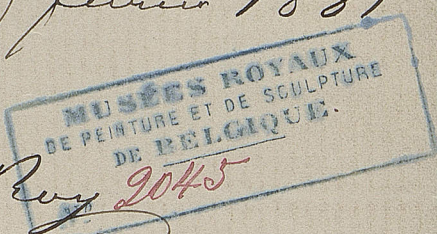 février 188
MUSÉES ROYAUX
DE PEINTURE ET DE SCULPTURE
DE BELGIQUE.
Roy 2045